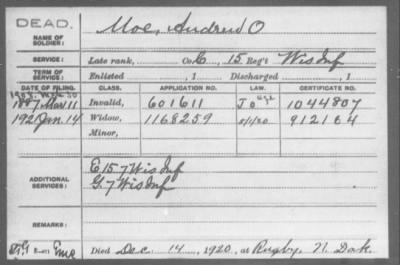 DEAD.
NAME OF SOLDIER: Moe, Andrew O
SERVICE: Late rank, Co. E, 15 Reg't Wis Inf
TERM OF SERVICE: Enlisted , 1 Discharged , 1
DATE OF FILING. CLASS. APPLICATION NO. LAW. CERTIFICATE NO.
1887 Mar 11 Invalid, 601611 1044807
1921 Jan. 14 Widow, 1168259 5/1/20 912164
Minor,
ADDITIONAL SERVICES: E 15 7 Wis Inf
G. 7 Wis Inf
REMARKS:
Died Dec. 14, 1920, at Rugby, N. Dak.